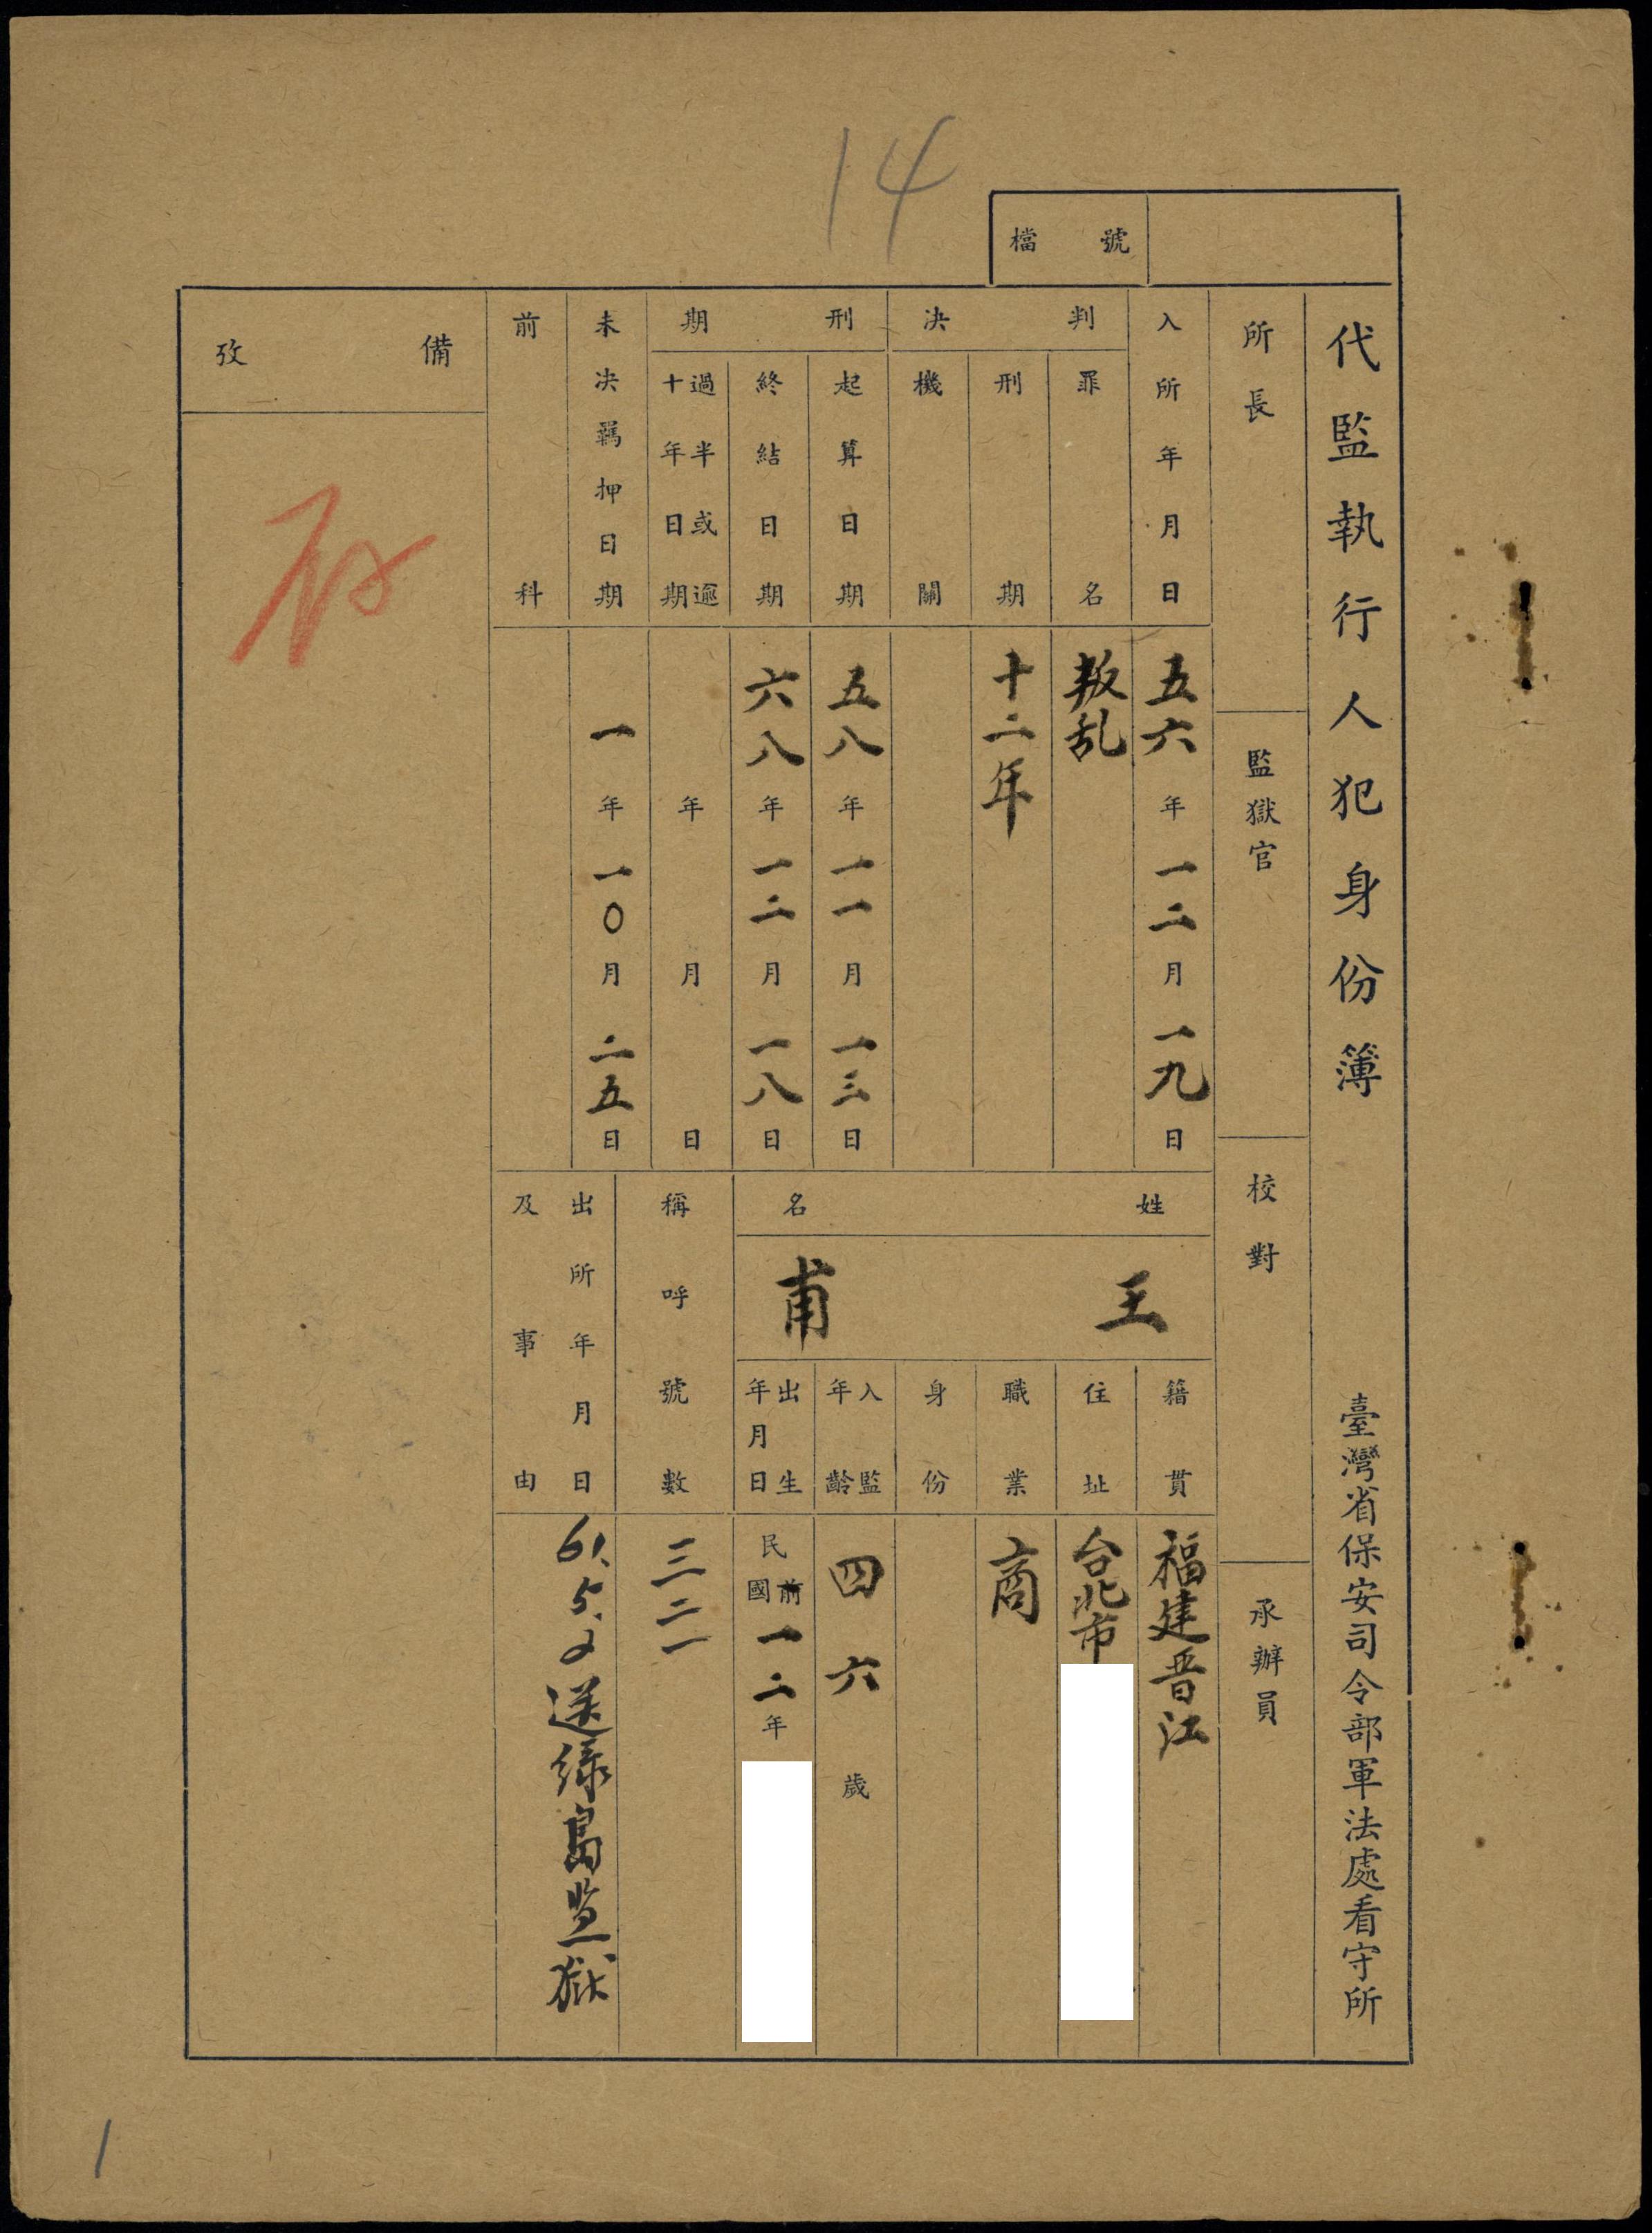 14
檔號
代監執行人犯身份簿 臺灣省保安司令部軍法處看守所
所長
監獄官
校對
承辦員
入所年月日 五六年一二月一九日
判決
罪名 叛乱
刑期 十二年
機關
刑期
起算日期 五八年一一月一三日
終結日期 六八年一二月一八日
過半或逾十年日期 年月日
未決羈押日期 一年一〇月二五日
前科
姓名
王甫
籍貫 福建晋江
住址 台北市
職業 商
身份
入監年齡 四六歲
出生年月日 民國前一二年
稱呼號數 三二一
出所年月日及事由 61.5.2送绿島监獄
備攷
1